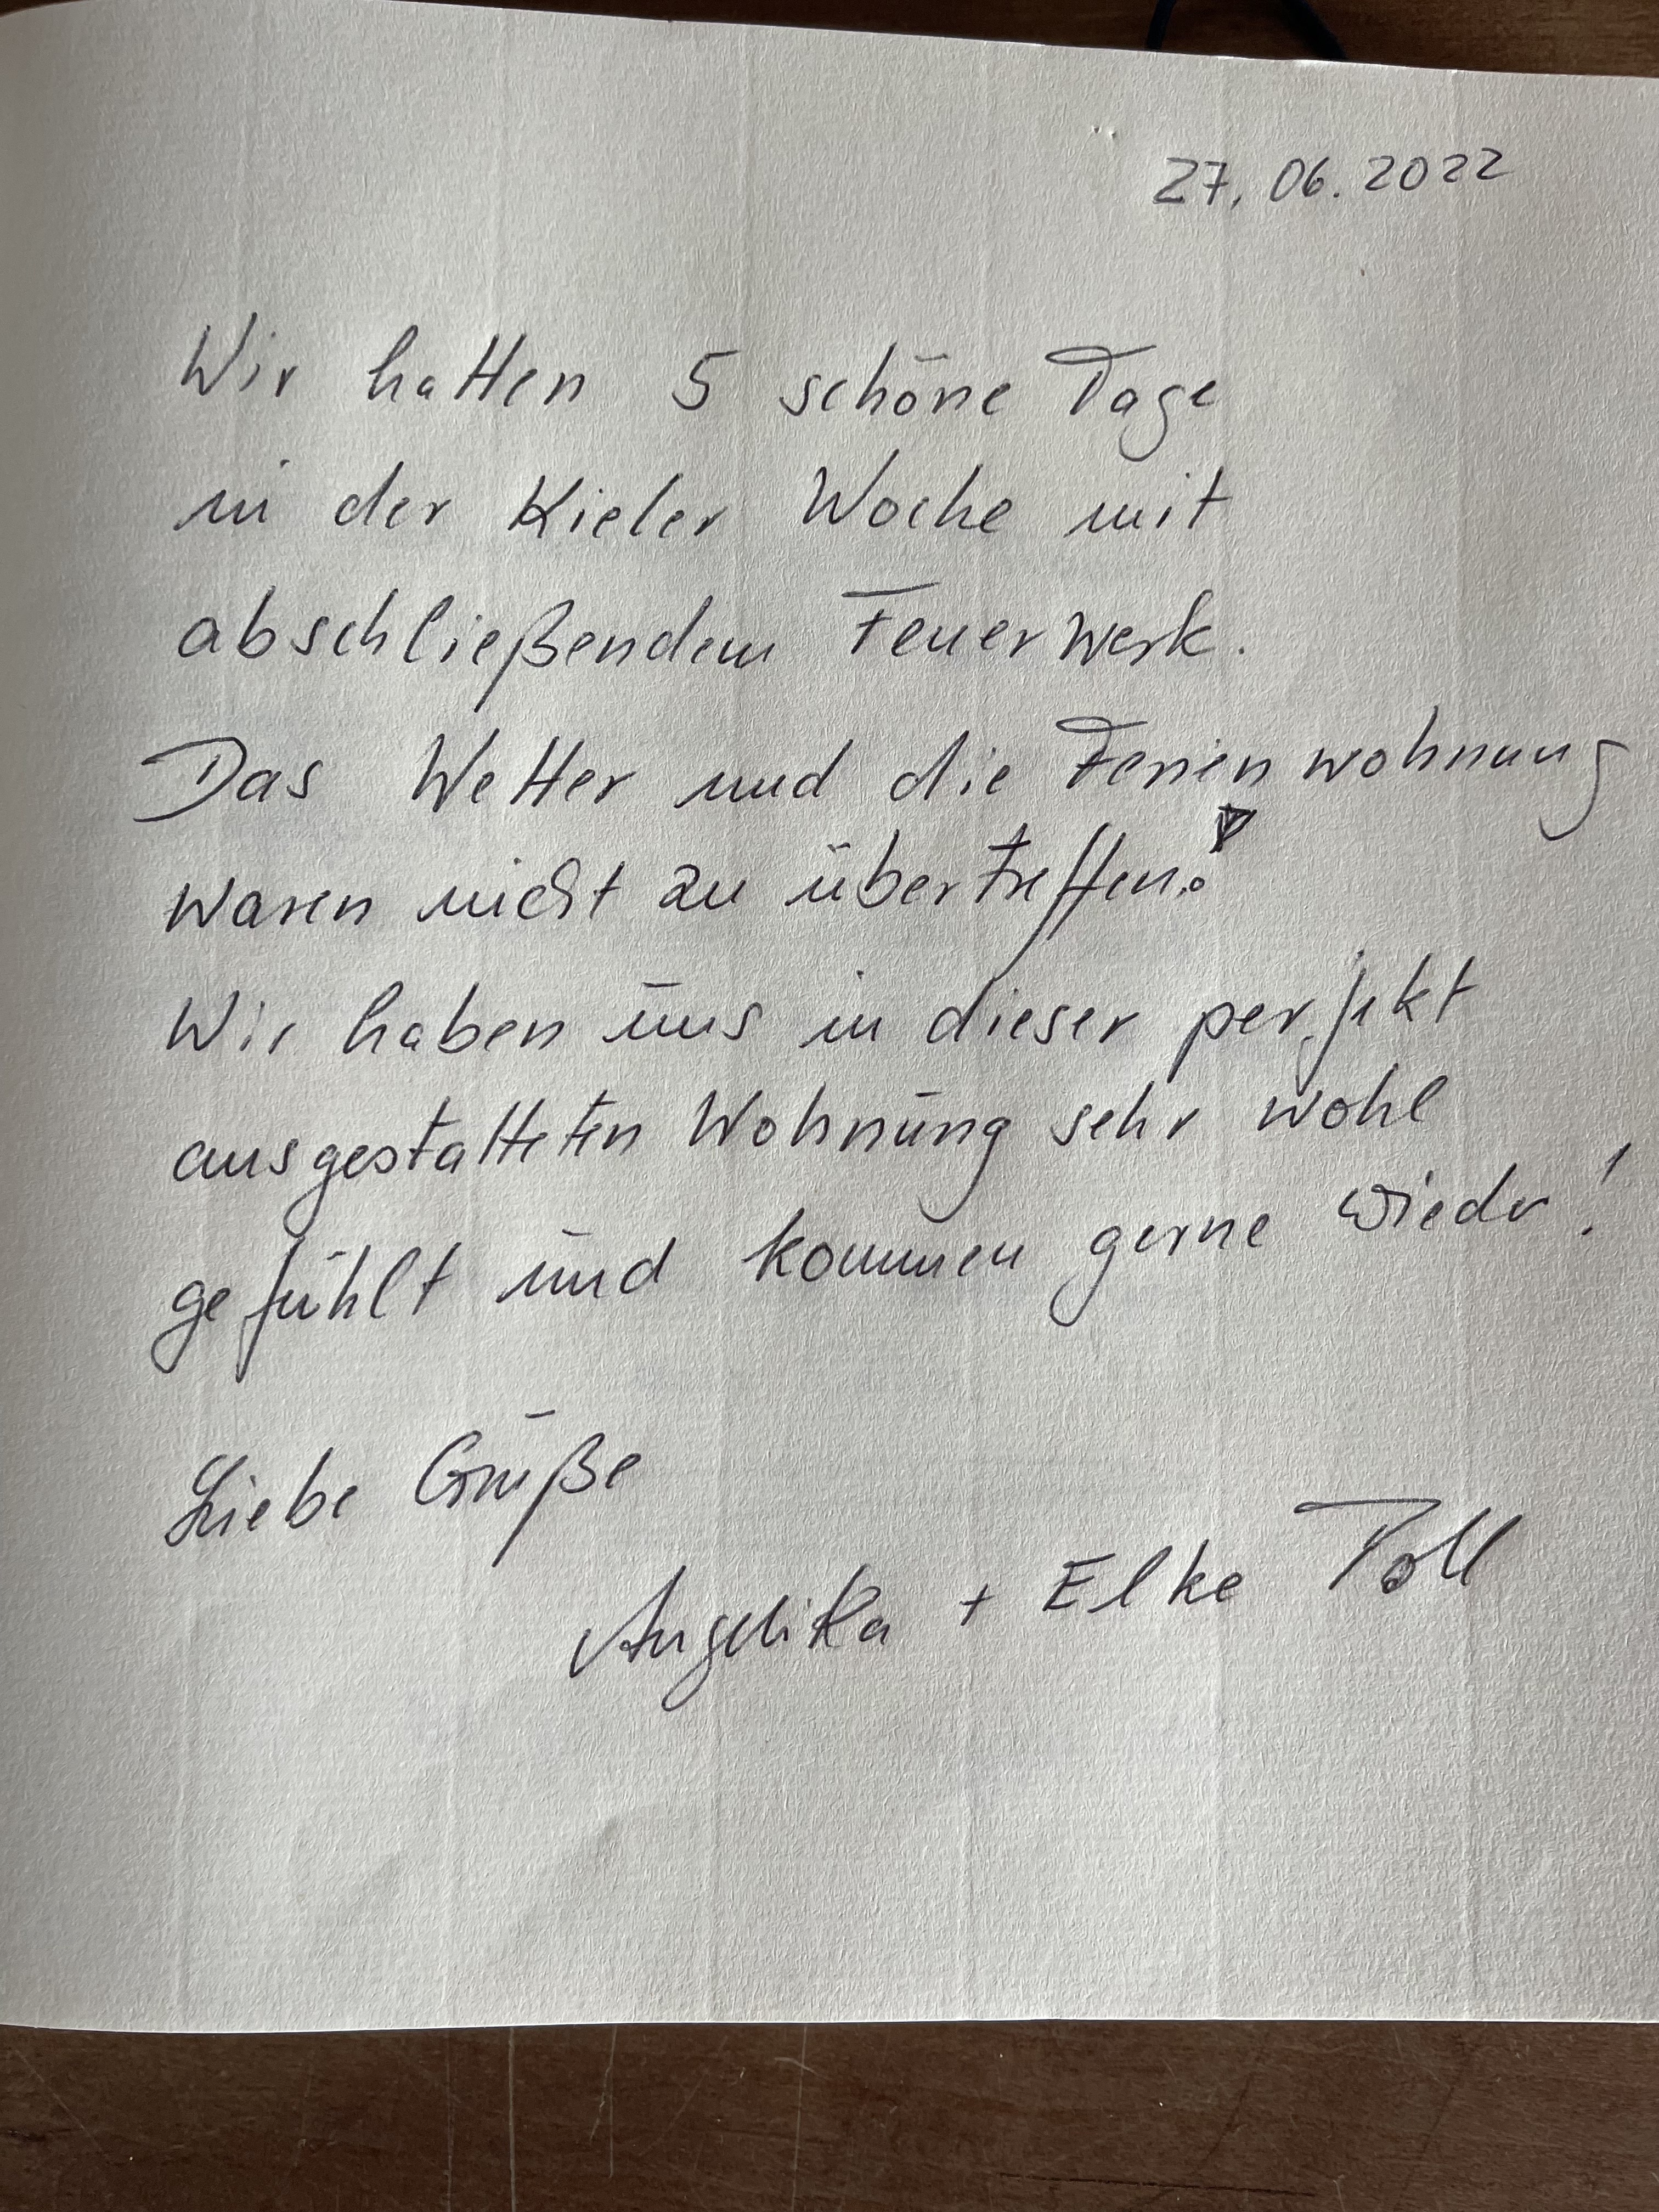 27.06.2022
Wir hatten 5 schöne Tage
in der Kieler Woche mit
abschließendem Feuerwerk.
Das Wetter und die Ferienwohnung
waren nicht zu übertreffen!
Wir haben uns in dieser perfekt
ausgestatteten Wohnung sehr wohl
gefühlt und kommen gerne wieder!
Liebe Grüße
Angelika + Elke Toll